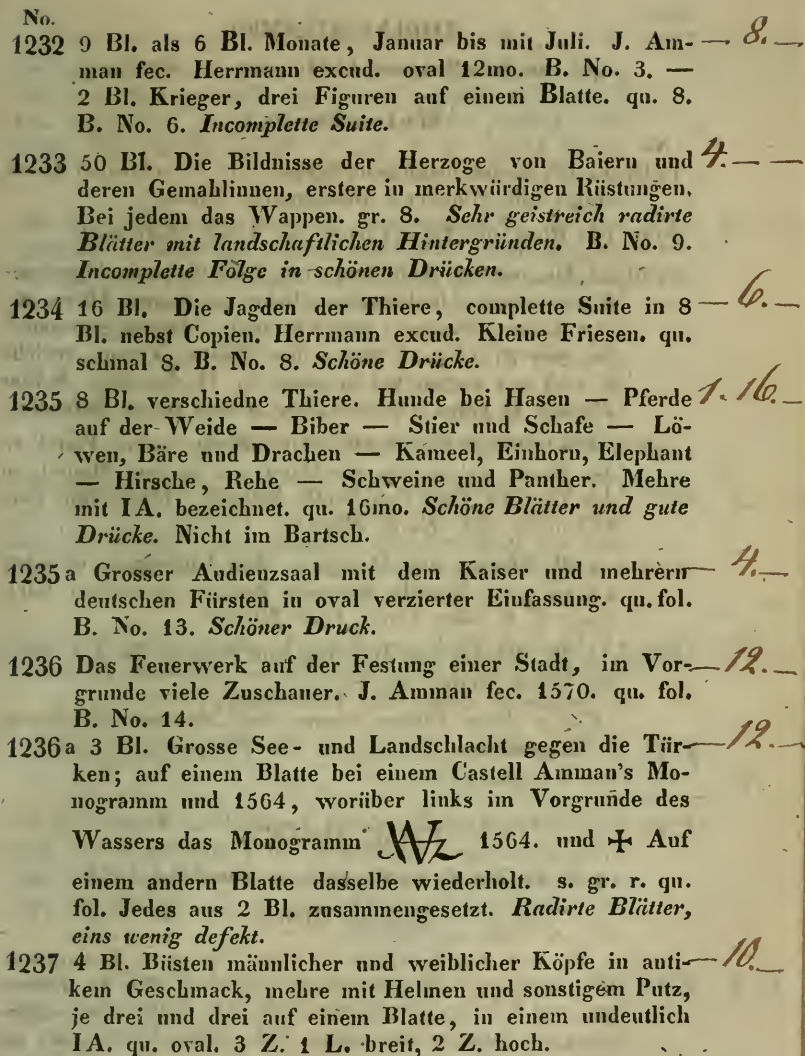 No.
1232 9 Bl. als 6 Bl. Monate, Januar bis mit Juli. J. Am- — 8. —
man fec. Herrmann excud. oval 12mo. B. No. 3. —
2 Bl. Krieger, drei Figuren auf einem Blatte. qu. 8.
B. No. 6. Incomplette Suite.
1233 50 Bl. Die Bildnisse der Herzoge von Baiern und 4. — —
deren Gemahlinnen, erstere in merkwürdigen Rüstungen.
Bei jedem das Wappen. gr. 8. Sehr geistreich radirte
Blätter mit landschaftlichen Hintergründen. B. No. 9.
Incomplette Folge in schönen Drücken.
1234 16 Bl. Die Jagden der Thiere, complette Suite in 8 — 6. —
Bl. nebst Copien. Herrmann excud. Kleine Friesen. qu.
schmal 8. B. No. 8. Schöne Drücke.
1235 8 Bl. verschiedne Thiere. Hunde bei Hasen — Pferde 1. 16. —
auf der Weide — Biber — Stier und Schafe — Lö-
wen, Bäre und Drachen — Kameel, Einhorn, Elephant
— Hirsche, Rehe — Schweine und Panther. Mehre
mit IA. bezeichnet. qu. 16mo. Schöne Blätter und gute
Drücke. Nicht im Bartsch.
1235a Grosser Audienzsaal mit dem Kaiser und mehrern — 4. —
deutschen Fürsten in oval verzierter Einfassung. qu. fol.
B. No. 13. Schöner Druck.
1236 Das Feuerwerk auf der Festung einer Stadt, im Vor- — 12. —
grunde viele Zuschauer. J. Amman fec. 1570. qu. fol.
B. No. 14.
1236a 3 Bl. Grosse See- und Landschlacht gegen die Tür- — 12. —
ken; auf einem Blatte bei einem Castell Amman's Mo-
nogramm und 1564, worüber links im Vorgrunde des
Wassers das Monogramm 1564. und ✢ Auf
einem andern Blatte dasselbe wiederholt. s. gr. r. qu.
fol. Jedes aus 2 Bl. zusammengesetzt. Radirte Blätter,
eins wenig defekt.
1237 4 Bl. Büsten männlicher und weiblicher Köpfe in anti- — 10. —
kem Geschmack, mehre mit Helmen und sonstigem Putz,
je drei und drei auf einem Blatte, in einem undeutlich
IA. qu. oval. 3 Z. 1 L. breit, 2 Z. hoch.